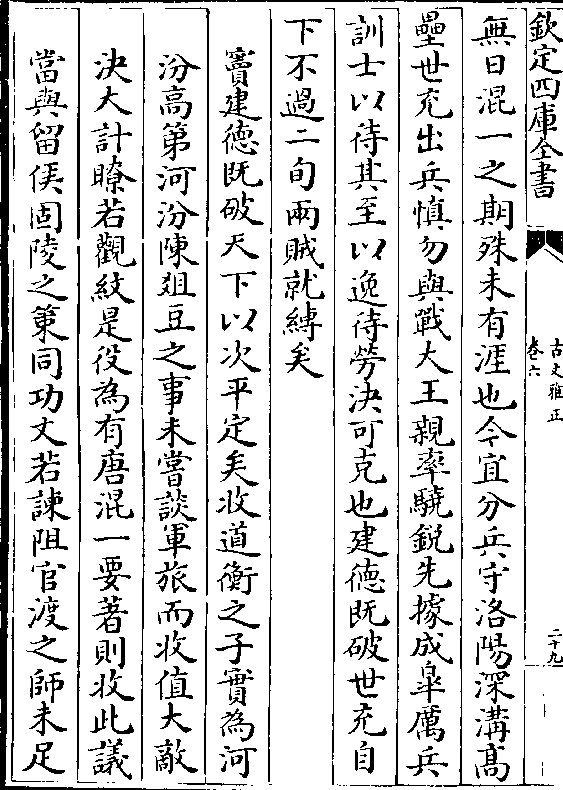 欽定四庫全書
古文雅正
卷六
二十九
無日混一之期殊未有涯也今宜分兵守洛陽深溝高
壘世充出兵慎勿與戰大王親率驍鋭先據成臯厲兵
訓士以待其至以逸待勞決可克也建德既破世充自
下不過二旬兩賊就縛矣
竇建德既破天下以次平定矣收道衡之子實為河
汾高第河汾陳爼豆之事未嘗談軍旅而收值大敵
決大計瞭若觀紋是役為有唐混一要著則收此議
當與留侯固陵之策同功文若諫阻官渡之師未足